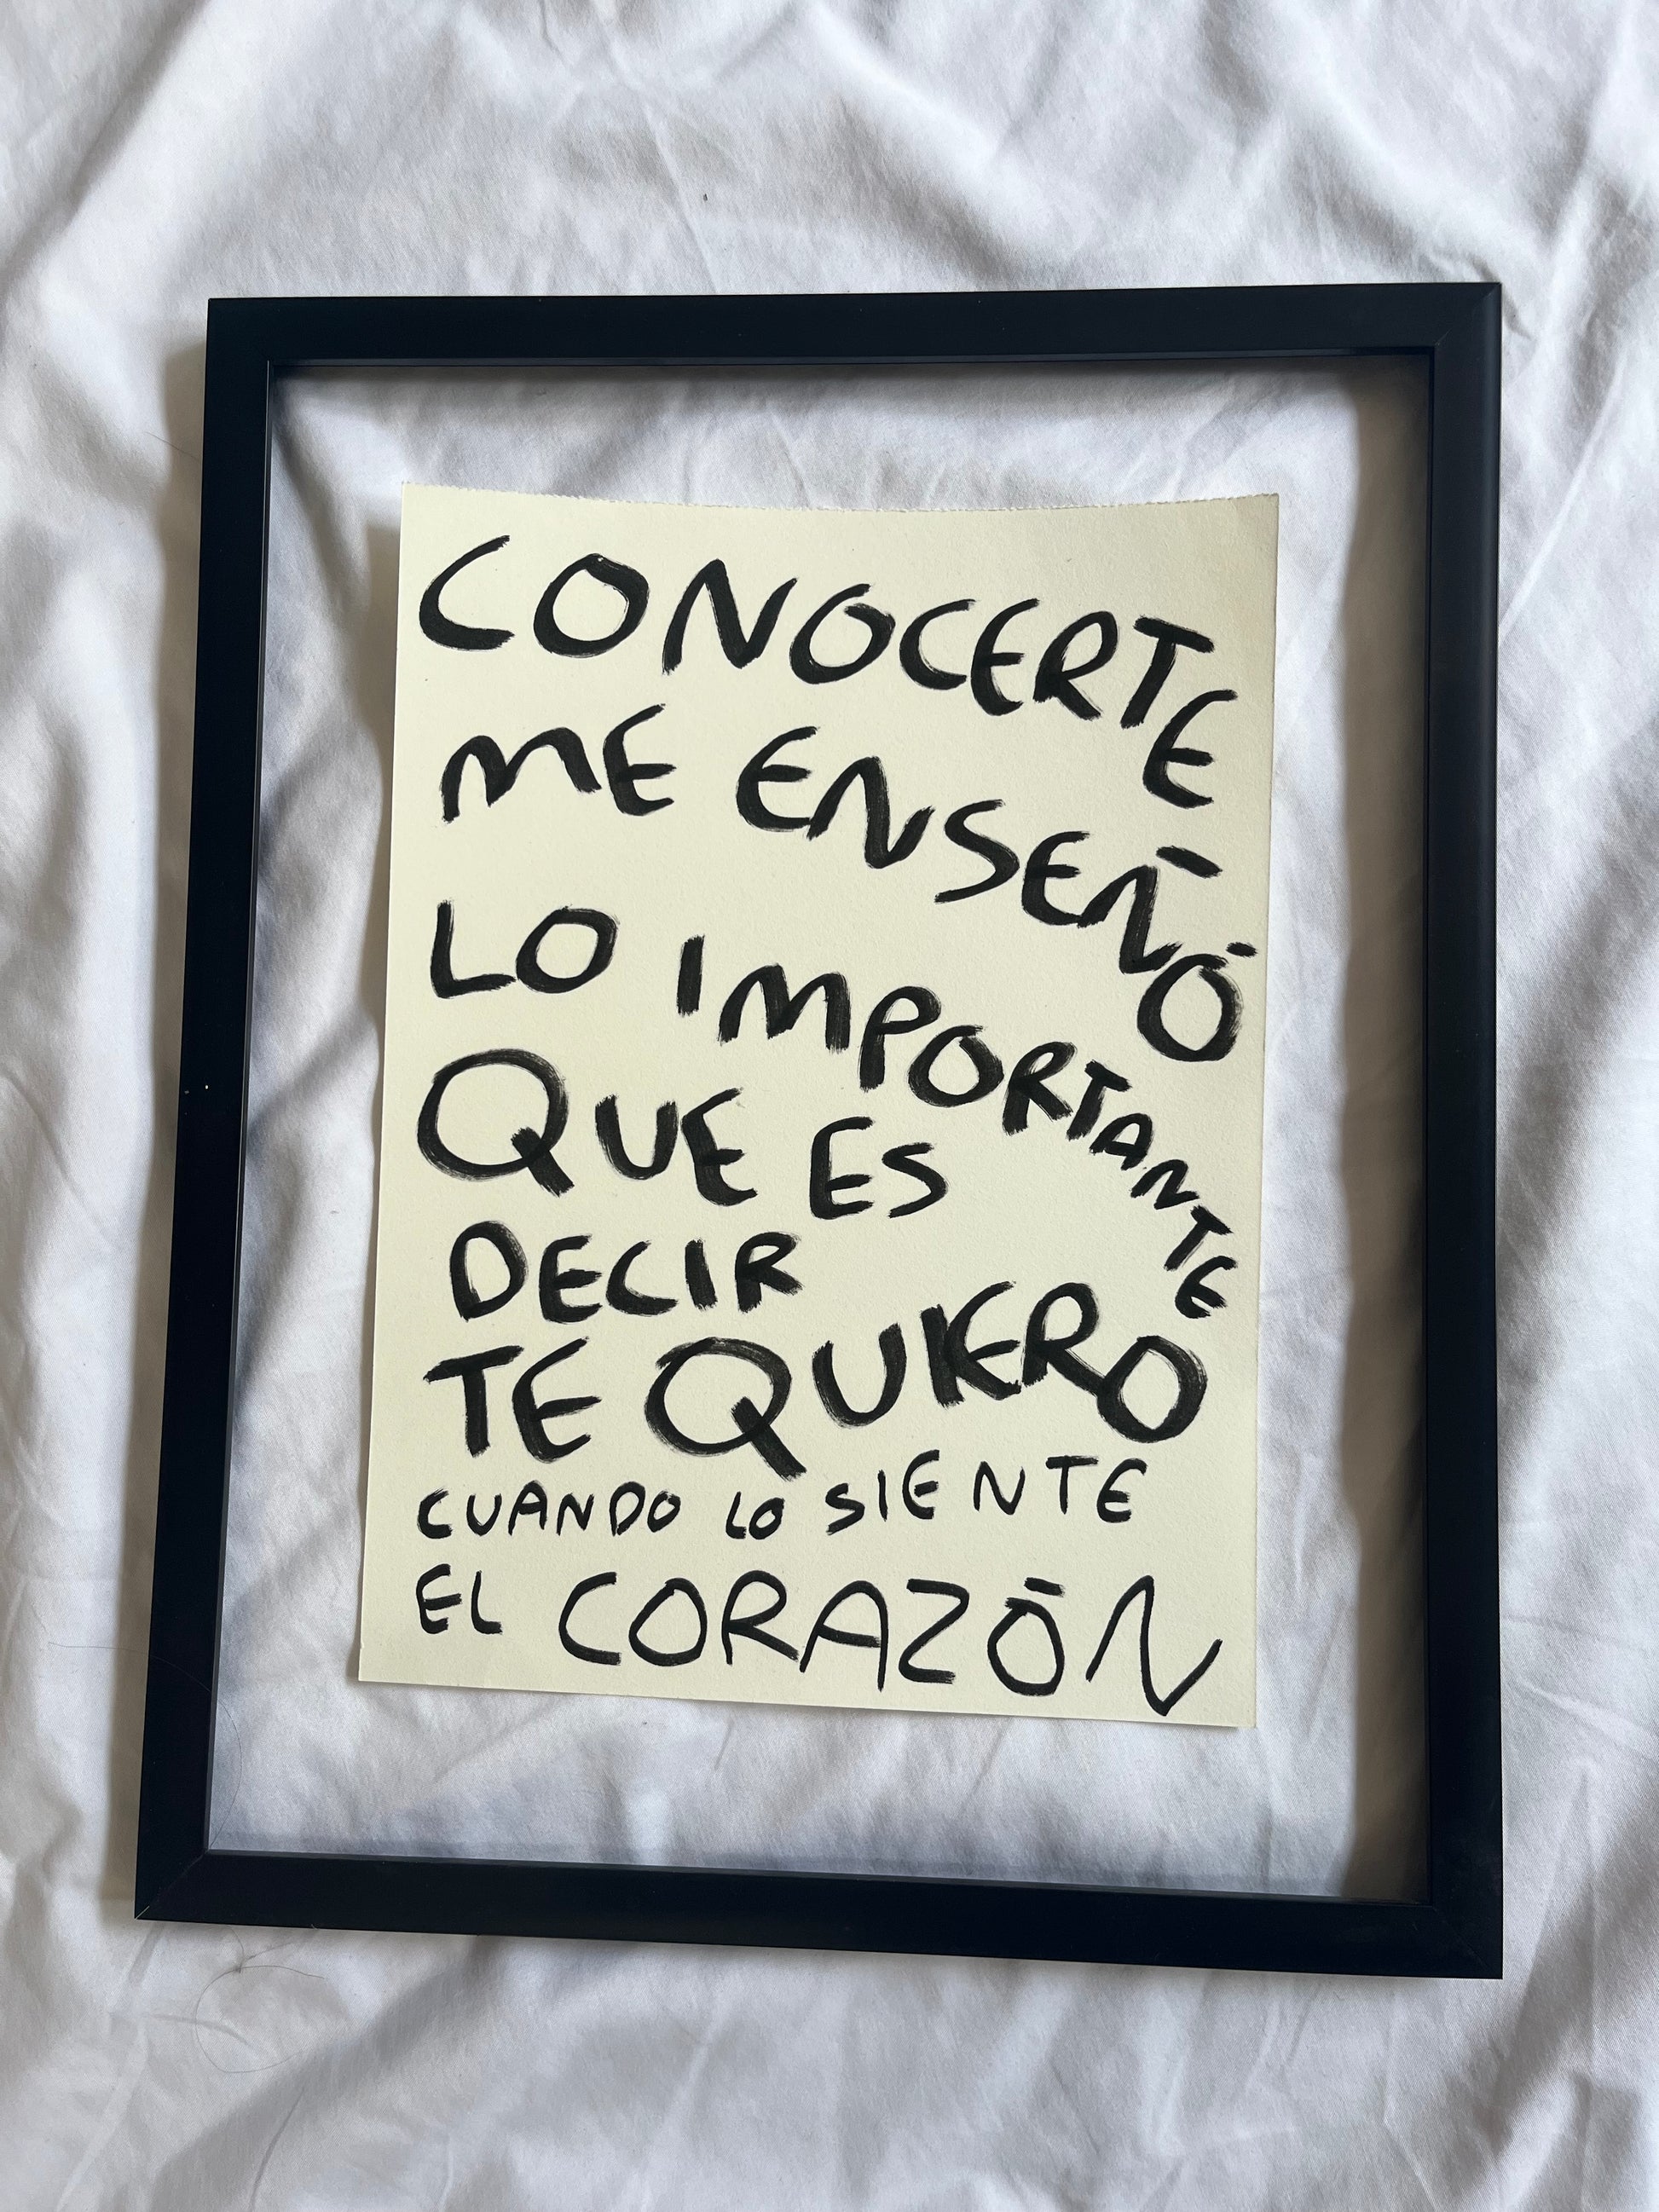 CONOCERTE
ME ENSEÑÓ
LO IMPORTANTE
QUE ES
DECIR
TE QUIERO
CUANDO LO SIENTE
EL CORAZÓN